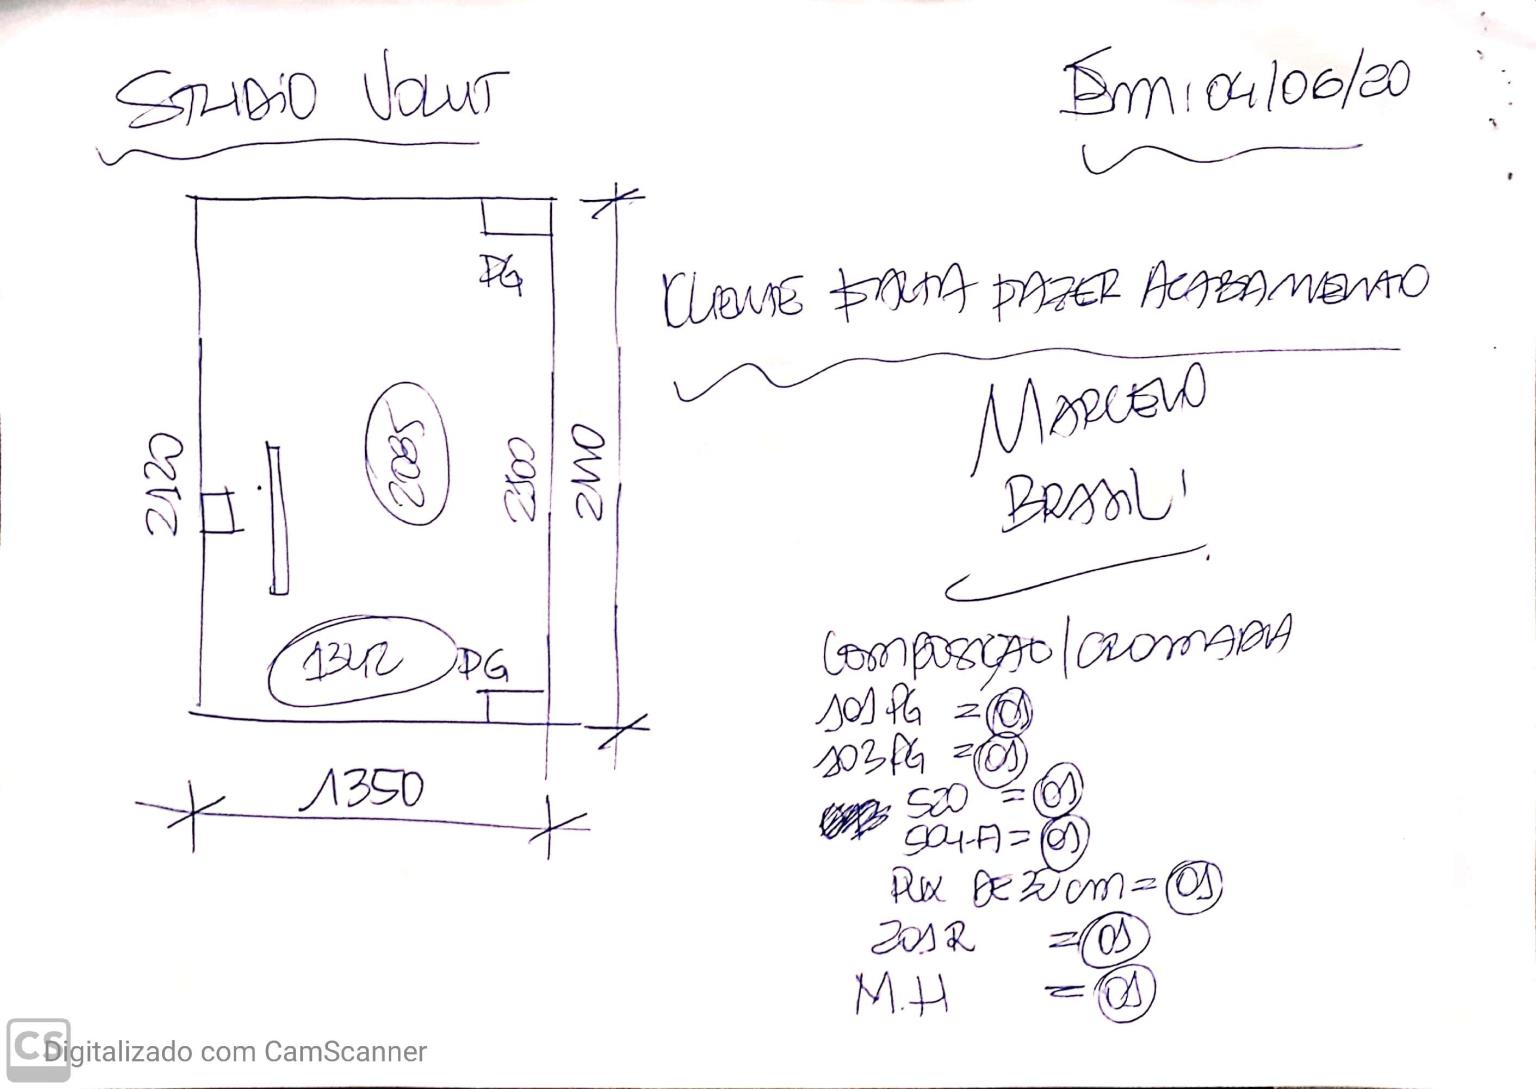 STUDIO VOLUT
Em: 04/06/20
PG
CLIENTE FALTA FAZER ACABAMENTO
MARCELO
BRASIL
2120
2085
2100
2110
1342
PG
1350
COMPOSIÇÃO/CROMADA
101 PG = 01
103 PG = 01
520 = 01
504-A = 01
PUX DE 30 cm = 01
201R = 01
M.H = 01
CS Digitalizado com CamScanner